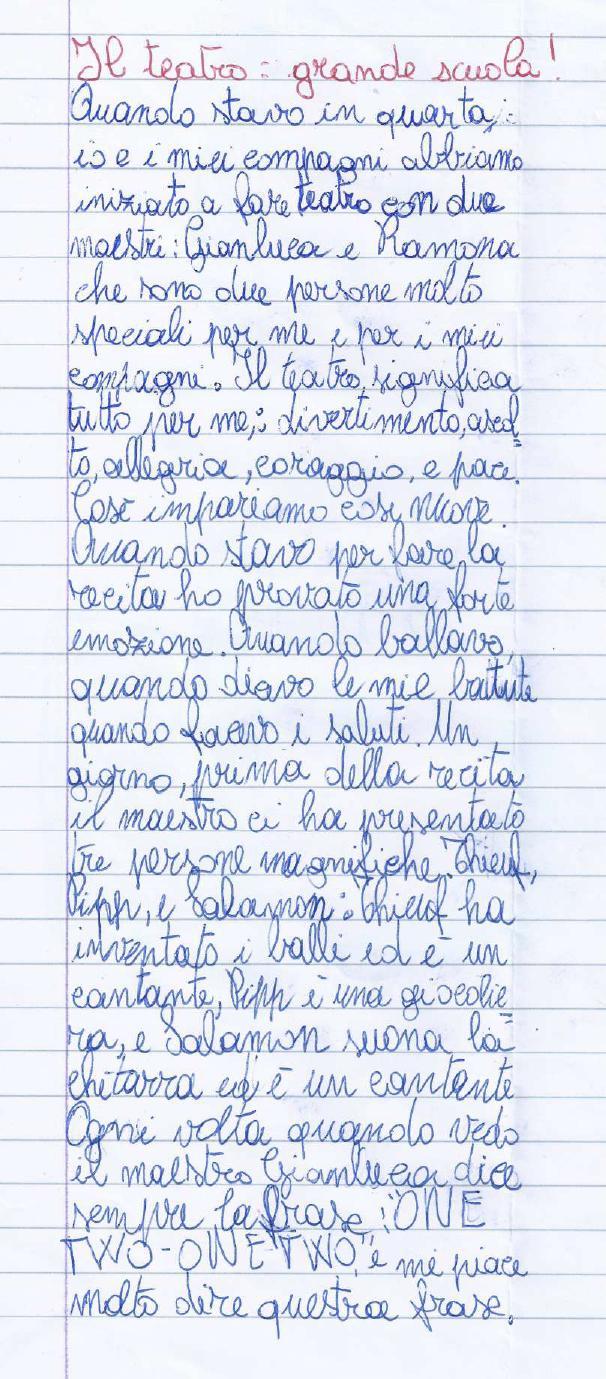 Il teatro: grande scuola!
Quando stavo in quarta,
io e i miei compagni abbiamo
iniziato a fare teatro con due
maestri: Gianluca e Ramona
che sono due persone molto
speciali per me e per i miei
compagni. Il teatro, significa
tutto per me,: divertimento, ascol=
to, allegria, coraggio, e pace.
Così impariamo cose nuove.
Quando stavo per fare la
recita ho provato una forte
emozione. Quando ballavo,
quando dicevo le mie battute
quando facevo i saluti. Un
giorno, prima della recita
il maestro ci ha presentato
tre persone magnifiche. Thieuf,
Pipp, e Salamon: Thieuf ha
inventato i balli ed è un
cantante, Pipp è una giocolie=
ra, e Salamon suona la
chitarra ed è un cantante
Ogni volta quando vedo
il maestro Gianluca dice
sempre la frase: "ONE
TWO-ONE TWO," e mi piace
molto dire questra frase.